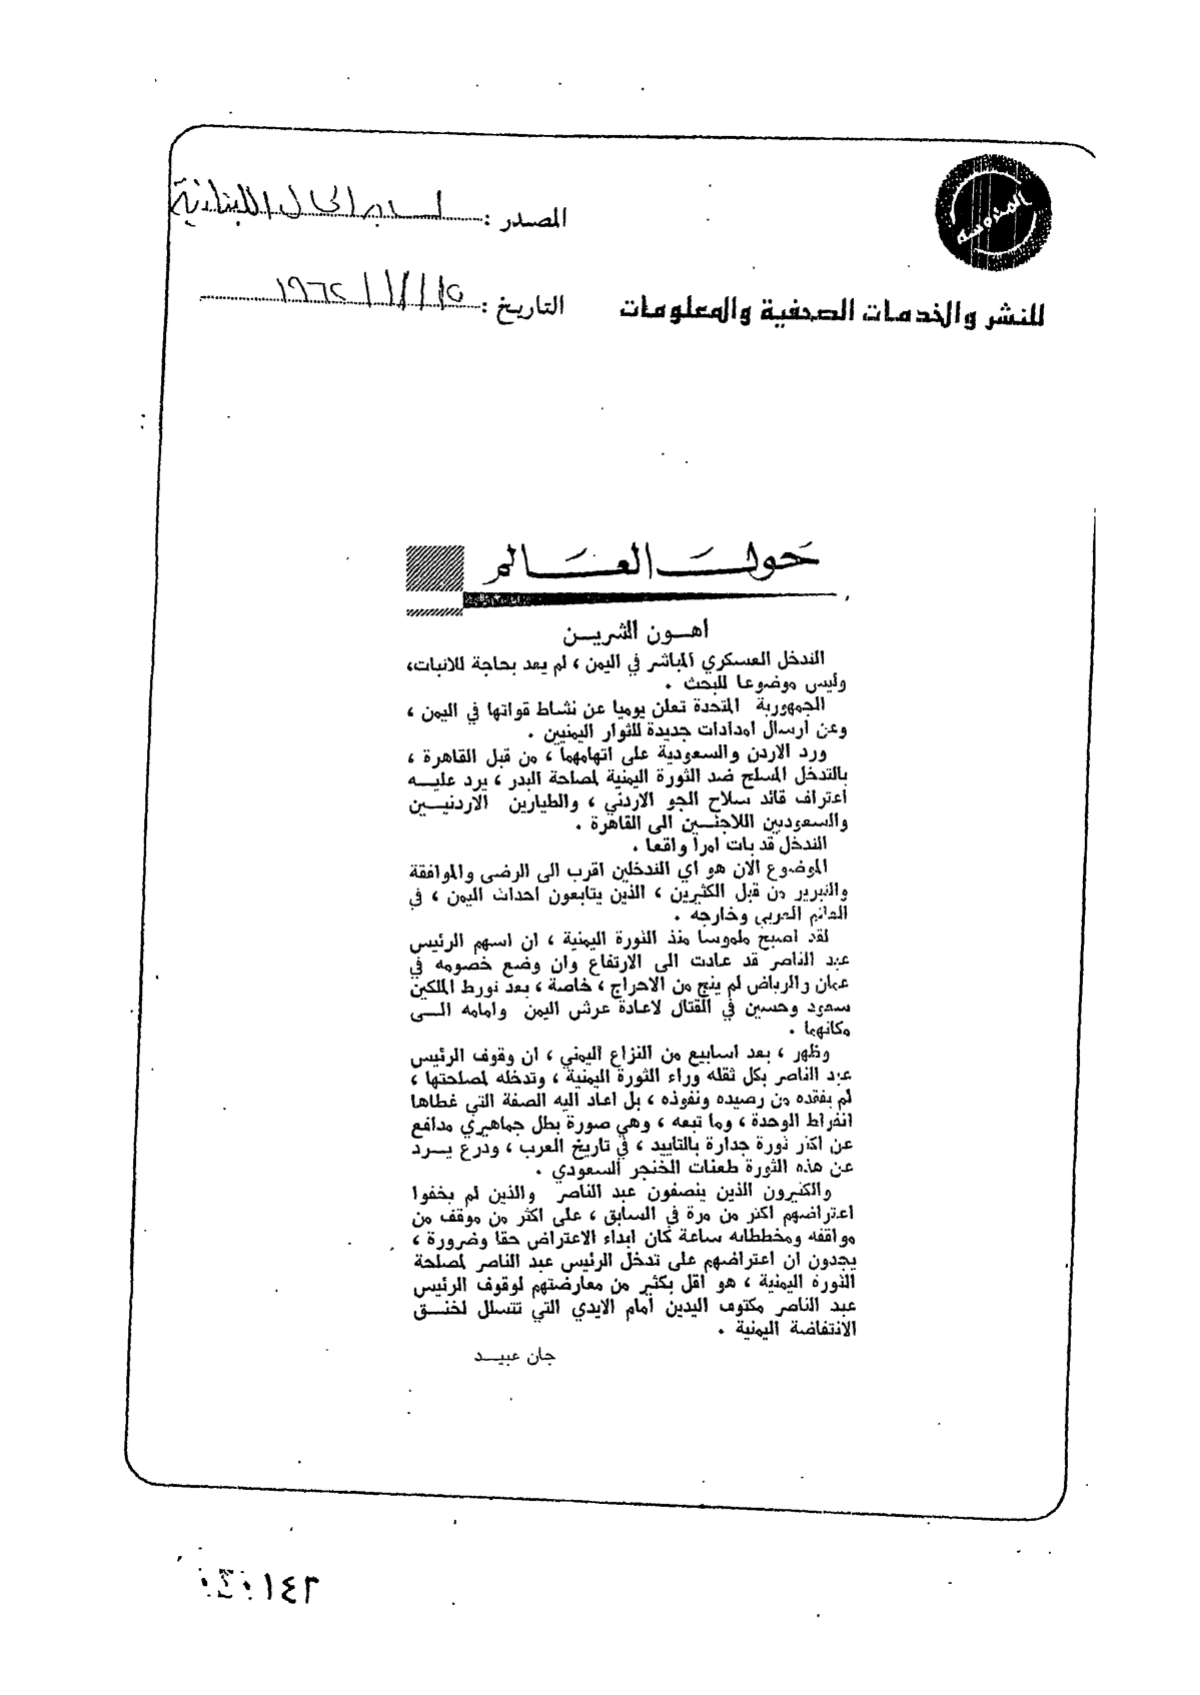 المحروسه
المصدر : لسان الحال اللبنانية
للنشر والخدمات الصحفية والمعلومات
التاريخ : ١٥/١١/١٩٦٢
حول العالم
اهون الشرين
التدخل العسكري المباشر في اليمن ، لم يعد بحاجة للاثبات،
وليس موضوعا للبحث .
الجمهورية المتحدة تعلن يوميا عن نشاط قواتها في اليمن ،
وعن ارسال امدادات جديدة للثوار اليمنيين .
ورد الاردن والسعودية على اتهامهما ، من قبل القاهرة ،
بالتدخل المسلح ضد الثورة اليمنية لمصلحة البدر ، يرد عليه
اعتراف قائد سلاح الجو الاردني ، والطيارين الاردنيين
والسعوديين اللاجئين الى القاهرة .
التدخل قد بات امرا واقعا .
الموضوع الان هو اي التدخلين اقرب الى الرضى والموافقة
والتبرير من قبل الكثيرين ، الذين يتابعون احداث اليمن ، في
العالم العربي وخارجه .
لقد اصبح ملموسا منذ الثورة اليمنية ، ان اسهم الرئيس
عبد الناصر قد عادت الى الارتفاع وان وضع خصومه في
عمان والرياض لم ينج من الاحراج ، خاصة ، بعد تورط الملكين
سعود وحسين في القتال لاعادة عرش اليمن وامامه الى
مكانهما .
وظهر ، بعد اسابيع من النزاع اليمني ، ان وقوف الرئيس
عبد الناصر بكل ثقله وراء الثورة اليمنية ، وتدخله لمصلحتها ،
لم يفقده من رصيده ونفوذه ، بل اعاد اليه الصفة التي غطاها
انفراط الوحدة ، وما تبعه ، وهي صورة بطل جماهيري مدافع
عن اكثر ثورة جدارة بالتاييد ، في تاريخ العرب ، ودرع يرد
عن هذه الثورة طعنات الخنجر السعودي .
والكثيرون الذين ينصفون عبد الناصر والذين لم يخفوا
اعتراضهم اكثر من مرة في السابق ، على اكثر من موقف من
مواقفه ومخططاته ساعة كان ابداء الاعتراض حقا وضرورة ،
يجدون ان اعتراضهم على تدخل الرئيس عبد الناصر لمصلحة
الثورة اليمنية ، هو اقل بكثير من معارضتهم لوقوف الرئيس
عبد الناصر مكتوف اليدين أمام الايدي التي تتسلل لخنق
الانتفاضة اليمنية .
جان عبيد